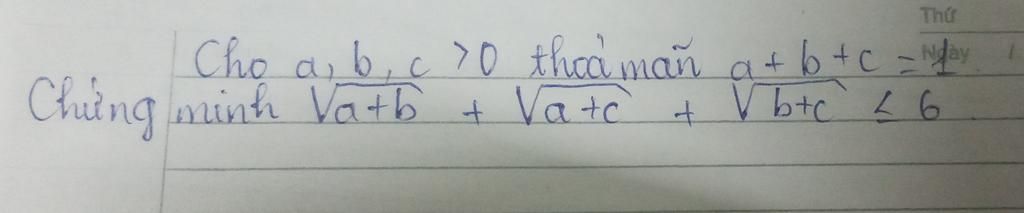 Thứ
Ngày
Cho a, b, c > 0 thoả mãn a + b + c = 1
Chứng minh √(a+b) + √(a+c) + √(b+c) ≤ 6